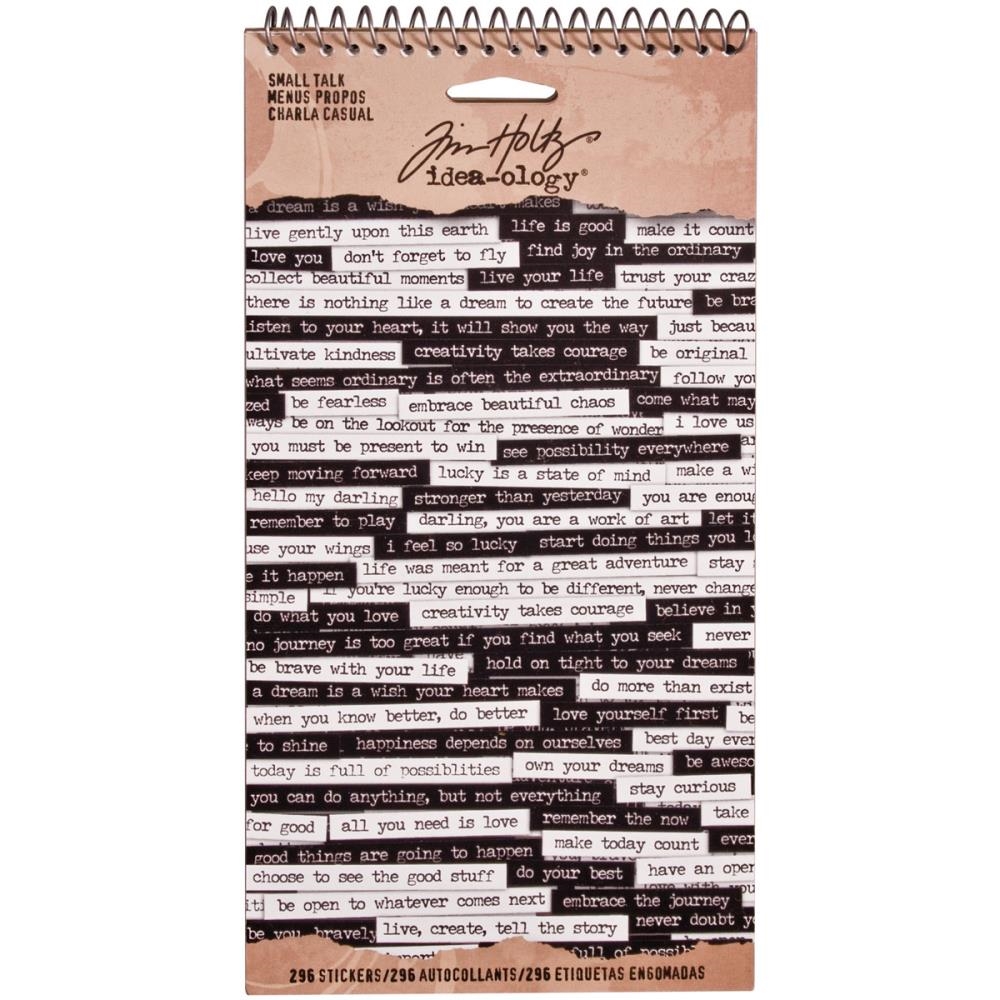 SMALL TALK
MENUS PROPOS
CHARLA CASUAL
Tim Holtz®
idea-ology®
a dream is a wish heart makes
live gently upon this earth life is good make it count
love you don't forget to fly find joy in the ordinary
collect beautiful moments live your life trust your craz
there is nothing like a dream to create the future be bra
isten to your heart, it will show you the way just becau
ultivate kindness creativity takes courage be original
what seems ordinary is often the extraordinary follow you
zed be fearless embrace beautiful chaos come what may
ways be on the lookout for the presence of wonder i love us
you must be present to win see possibility everywhere
keep moving forward lucky is a state of mind make a wi
hello my darling stronger than yesterday you are enoug
remember to play darling, you are a work of art let it
use your wings i feel so lucky start doing things you l
e it happen life was meant for a great adventure stay
simple if you're lucky enough to be different, never change
do what you love creativity takes courage believe in y
no journey is too great if you find what you seek never
be brave with your life hold on tight to your dreams
a dream is a wish your heart makes do more than exist
when you know better, do better love yourself first be
to shine happiness depends on ourselves best day ever
today is full of possiblities own your dreams be aweso
you can do anything, but not everything stay curious
for good all you need is love remember the now take
good things are going to happen make today count ever
choose to see the good stuff do your best have an open
iti be open to whatever comes next embrace the journey
be you, bravely live, create, tell the story never doubt y
full of possib
296 STICKERS/296 AUTOCOLLANTS/296 ETIQUETAS ENGOMADAS